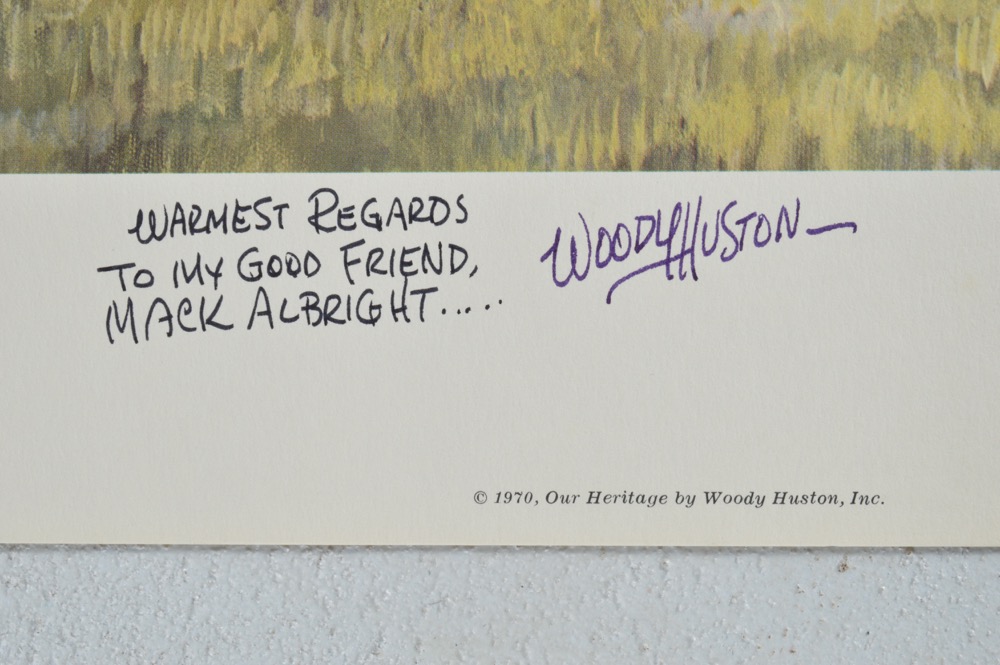 WARMEST REGARDS
TO MY GOOD FRIEND,
MACK ALBRIGHT.....
WOODY HUSTON
© 1970, Our Heritage by Woody Huston, Inc.